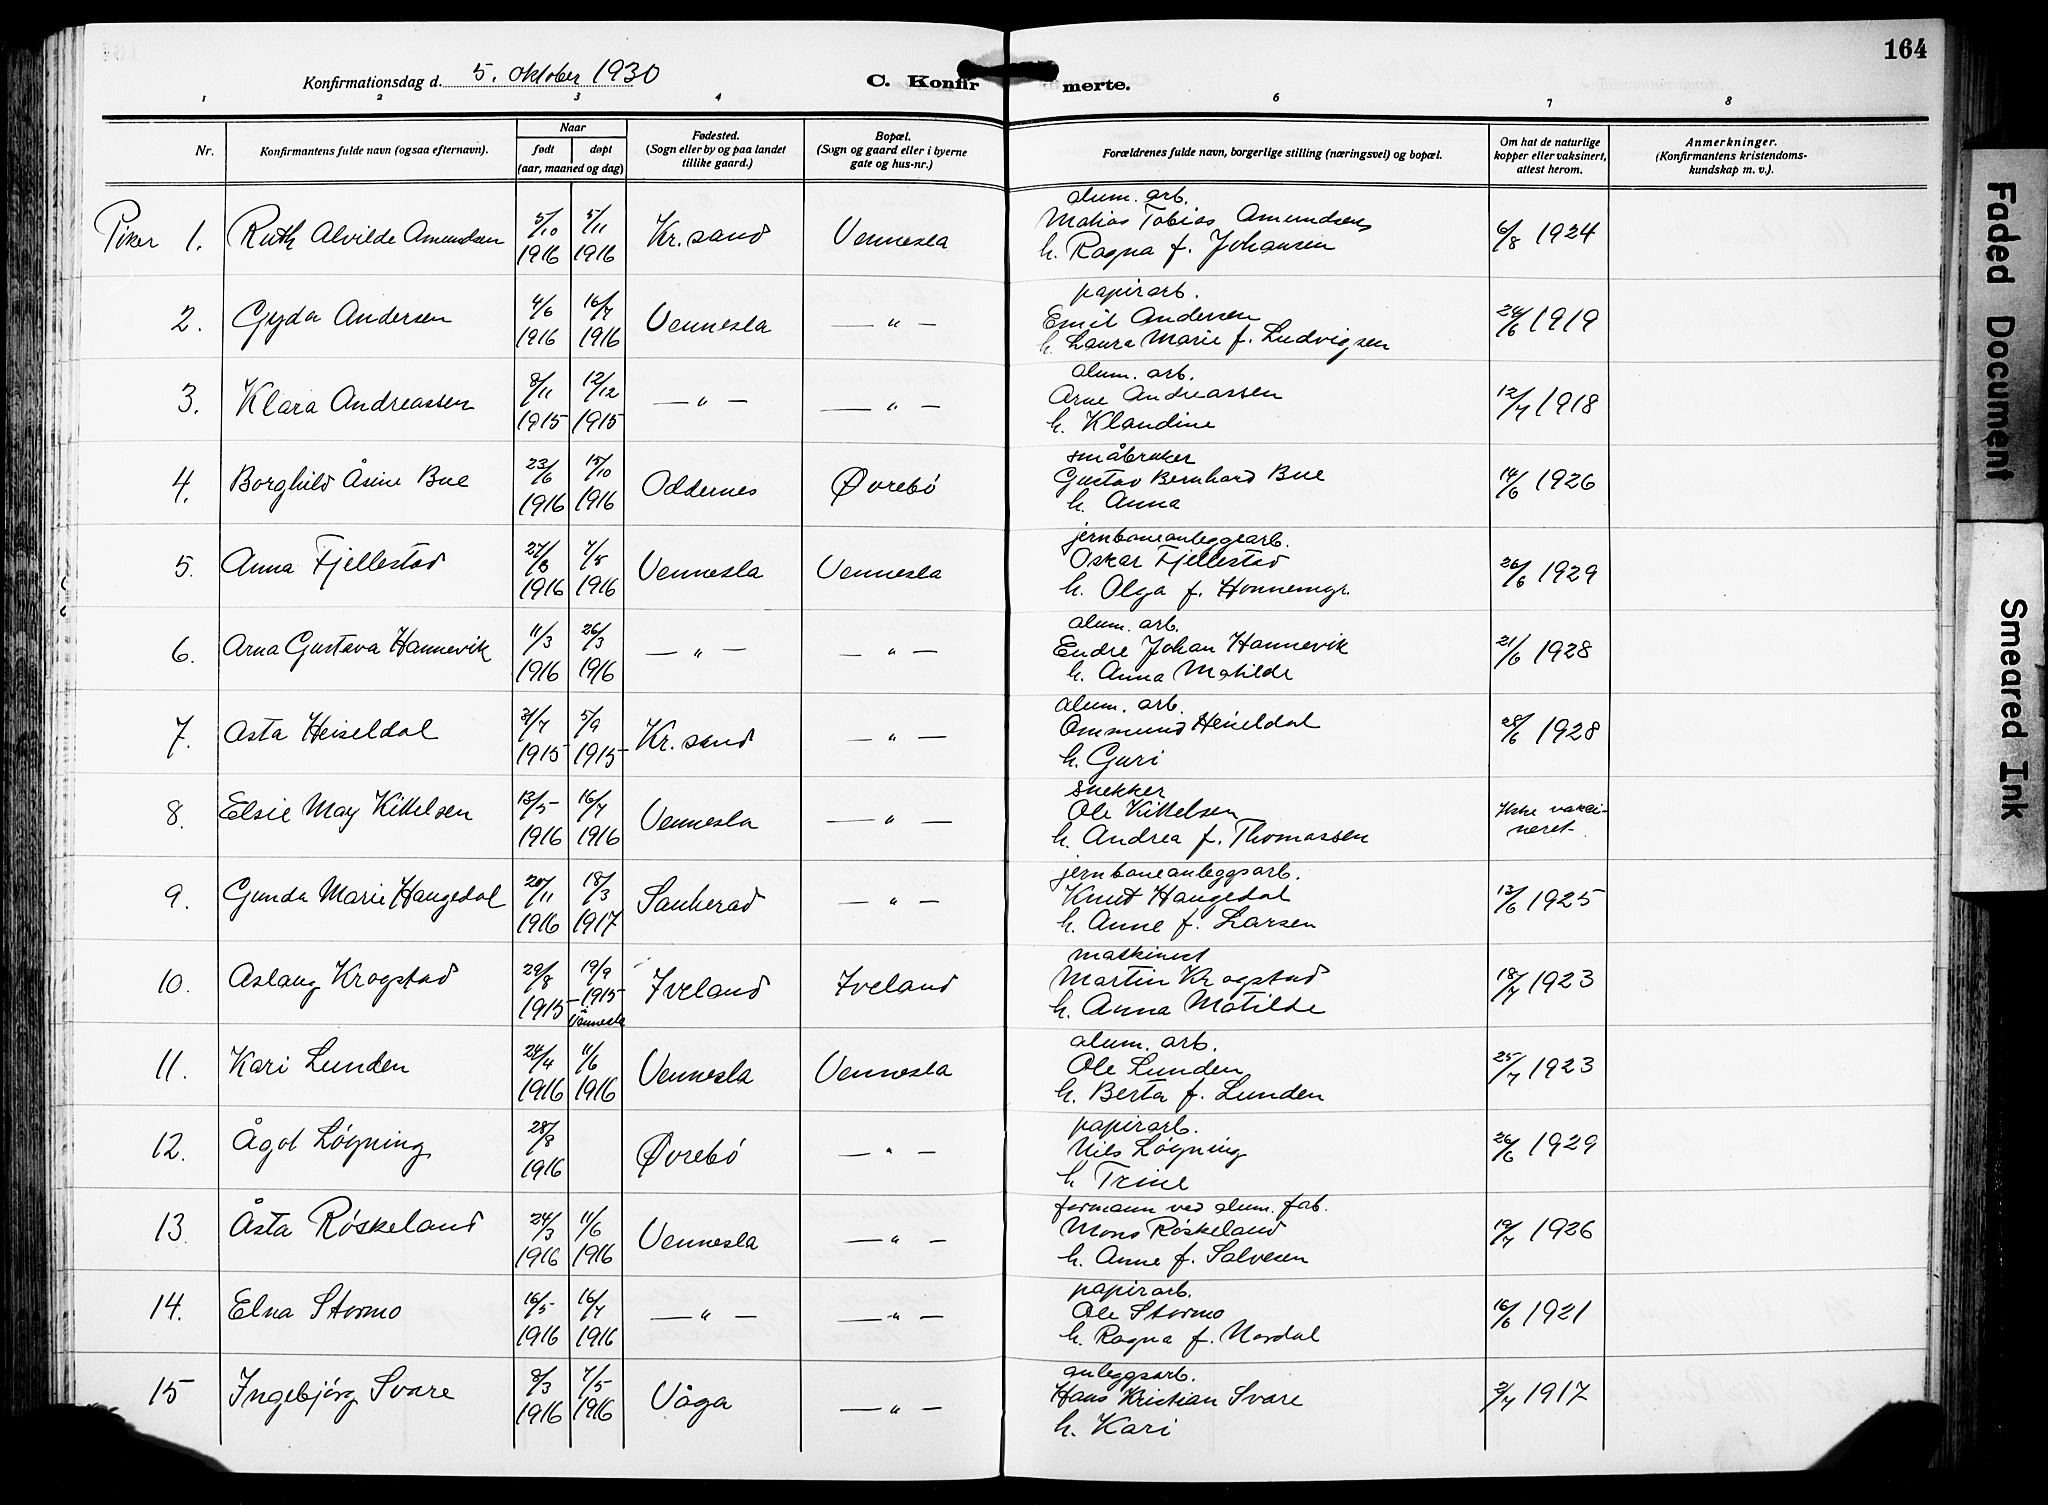 164
Konfirmationsdag d. 5. oktober 1930
C. Konfirmerte.
1 2 3 4 6 7 8
Nr.
Konfirmantens fulde navn (ogsaa efternavn).
Naar
født døpt
(aar, maaned og dag)
Fødested.
(Sogn eller by og paa landet
tillike gaard.)
Bopæl.
(Sogn og gaard eller i byerne
gate og hus-nr.)
Forældrenes fulde navn, borgerlige stilling (næringsvei) og bopæl.
Om hat de naturlige
kopper eller vaksinert,
attest herom.
Anmerkninger.
(Konfirmantens kristendoms-
kundskap m. v.).
Piker 1. Ruth Alvilde Amundsen 5/10 1916 5/11 1916 Kr.sand Vennesla
alum. arb.
Matias Tobias Amundsen
h. Ragna f. Johansen
6/8 1924
2. Gyda Andersen 4/6 1916 16/7 1916 Vennesla — " —
papirarb.
Emil Andersen
h. Laura Marie f. Ludvigsen
24/6 1919
3. Klara Andreassen 8/11 1915 12/12 1915 — " — — " —
alum. arb.
Arne Andreassen
h. Klaudine
12/7 1918
4. Borghild Åsine Bue 23/6 1916 15/10 1916 Oddernes Øvrebö
småbruker
Gustav Bernhard Bue
h. Anna
14/6 1926
5. Anna Fjellestad 1916 1916 Vennesla Vennesla
jernbaneanleggsarb.
Oskar Fjellestad
h. Olga f. Honnemyr.
26/6 1929
6. Arna Gustava Hannevik 11/3 1916 26/3 1916 — " — — " —
alum. arb.
Endre Johan Hannevik
h. Anna Matilde
21/6 1928
7. Asta Heiseldal 31/7 1915 5/9 1915 Kr.sand — " —
alum. arb.
Ommund Heiseldal
h. Guri
28/6 1928
8. Elsie May Kittelsen 13/5 1916 16/7 1916 Vennesla — " —
snekker
Ole Kittelsen
h. Andrea f. Thomassen
Ikke vakci-
neret.
9. Gunda Marie Haugedal 20/11 1916 18/3 1917 Sauherad — " —
jernbaneanleggsarb.
Knut Haugedal
h. Anne f. Larsen
13/6 1925
10. Aslaug Krogstad 29/8 1915 19/9 1915 i Vennesla Iveland Iveland
maskinist
Martin Krogstad
h. Anna Matilde
18/7 1923
11. Kari Lunden 24/4 1916 11/6 1916 Vennesla Vennesla
alum. arb.
Ole Lunden
h. Berta f. Lunden
25/7 1923
12. Ågot Löyning 28/8 1916 Øvrebö — " —
papirarb.
Nils Löyning
h Trine
26/6 1929
13. Åsta Röskeland 24/3 1916 11/6 1916 Vennesla — " —
formann ved alum. fab.
Mons Röskeland
h. Anne f. Salvesen
19/7 1926
14. Elna Stormo 16/5 1916 16/7 1916 — " — — " —
papirarb.
Ole Stormo
h. Ragna f. Nordal
16/6 1921
15 Ingebjörg Svare 8/3 1916 7/5 1916 Våga — " —
anleggsarb.
Hans Kristian Svare
h. Kari
3/7 1917
Faded Document
Smeared Ink